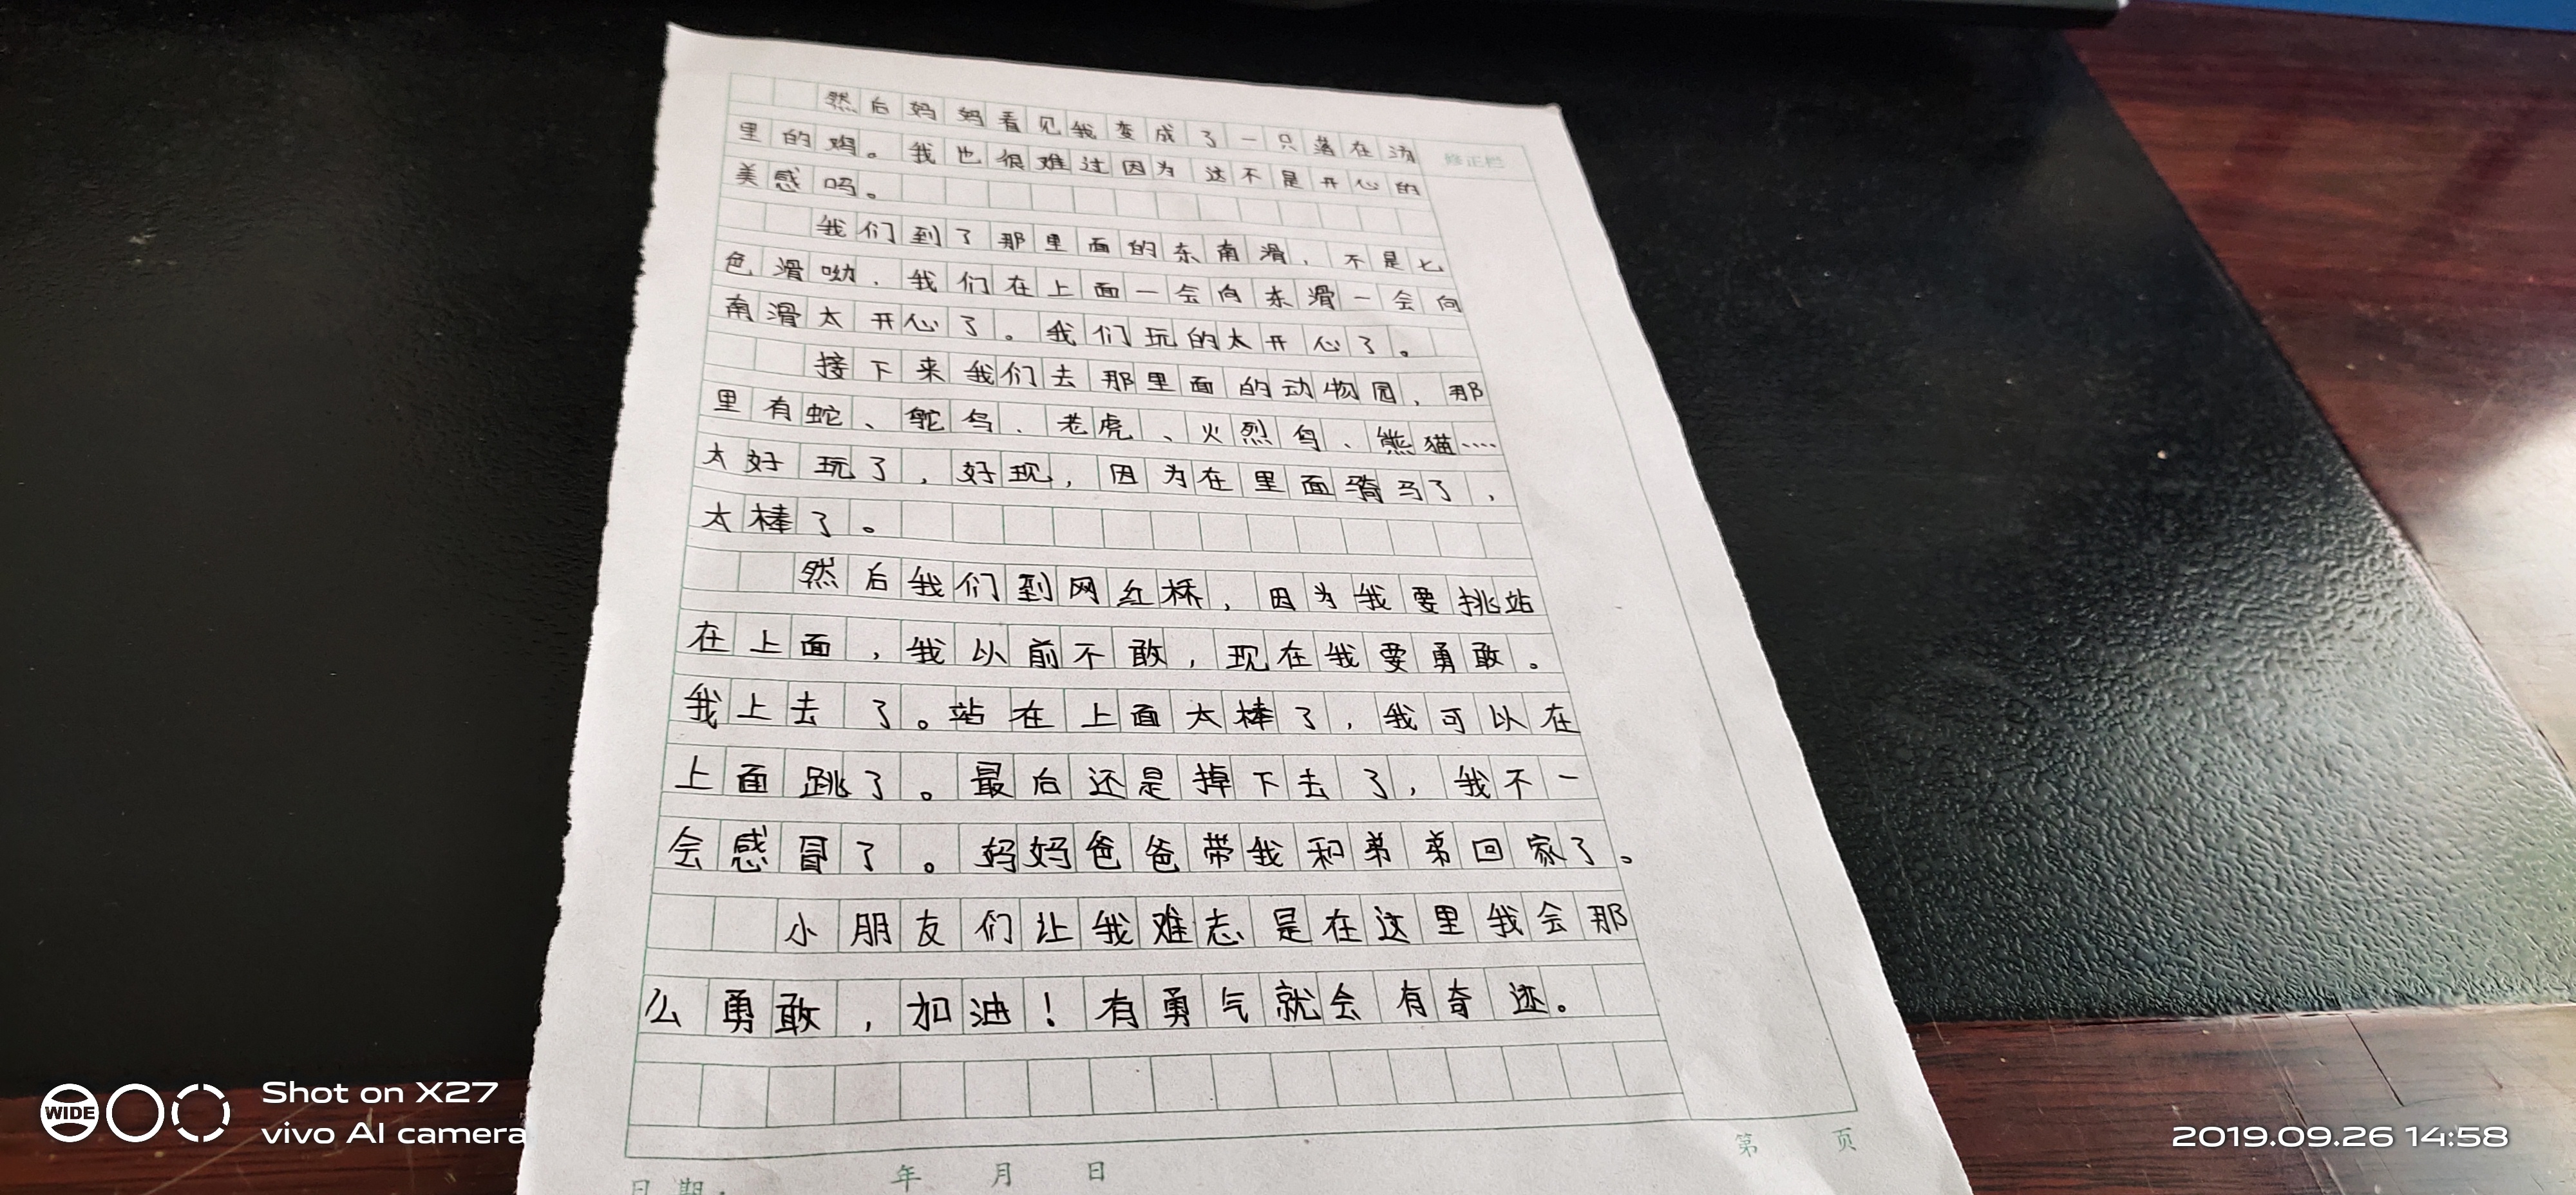 然后妈妈看见我变成了一只落在汤
修正栏
里的鸡。我也很难过因为这不是开心的
美感吗。
我们到了那里面的东南滑，不是七
色滑呦，我们在上面一会向东滑一会向
南滑太开心了。我们玩的太开心了。
接下来我们去那里面的动物园，那
里有蛇、鸵鸟、老虎、火烈鸟、熊猫····
太好玩了，好现，因为在里面骑马了，
太棒了。
然后我们到网红桥，因为我要挑站
在上面，我以前不敢，现在我要勇敢。
我上去了。站在上面太棒了，我可以在
上面跳了。最后还是掉下去了，我不一
会感冒了。妈妈爸爸带我和弟弟回家了。
小朋友们让我难志是在这里我会那
么勇敢，加油！有勇气就会有奇迹。
第 页
日期： 年 月 日
WIDE
Shot on X27
vivo AI camera
2019.09.26 14:58